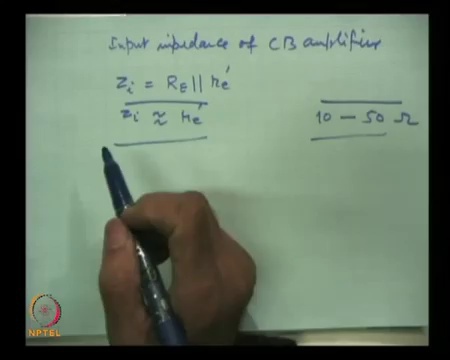 Input impedance of CB amplifier
Zi = RE || re'
Zi ≈ re'
10 — 50 Ω
NPTEL